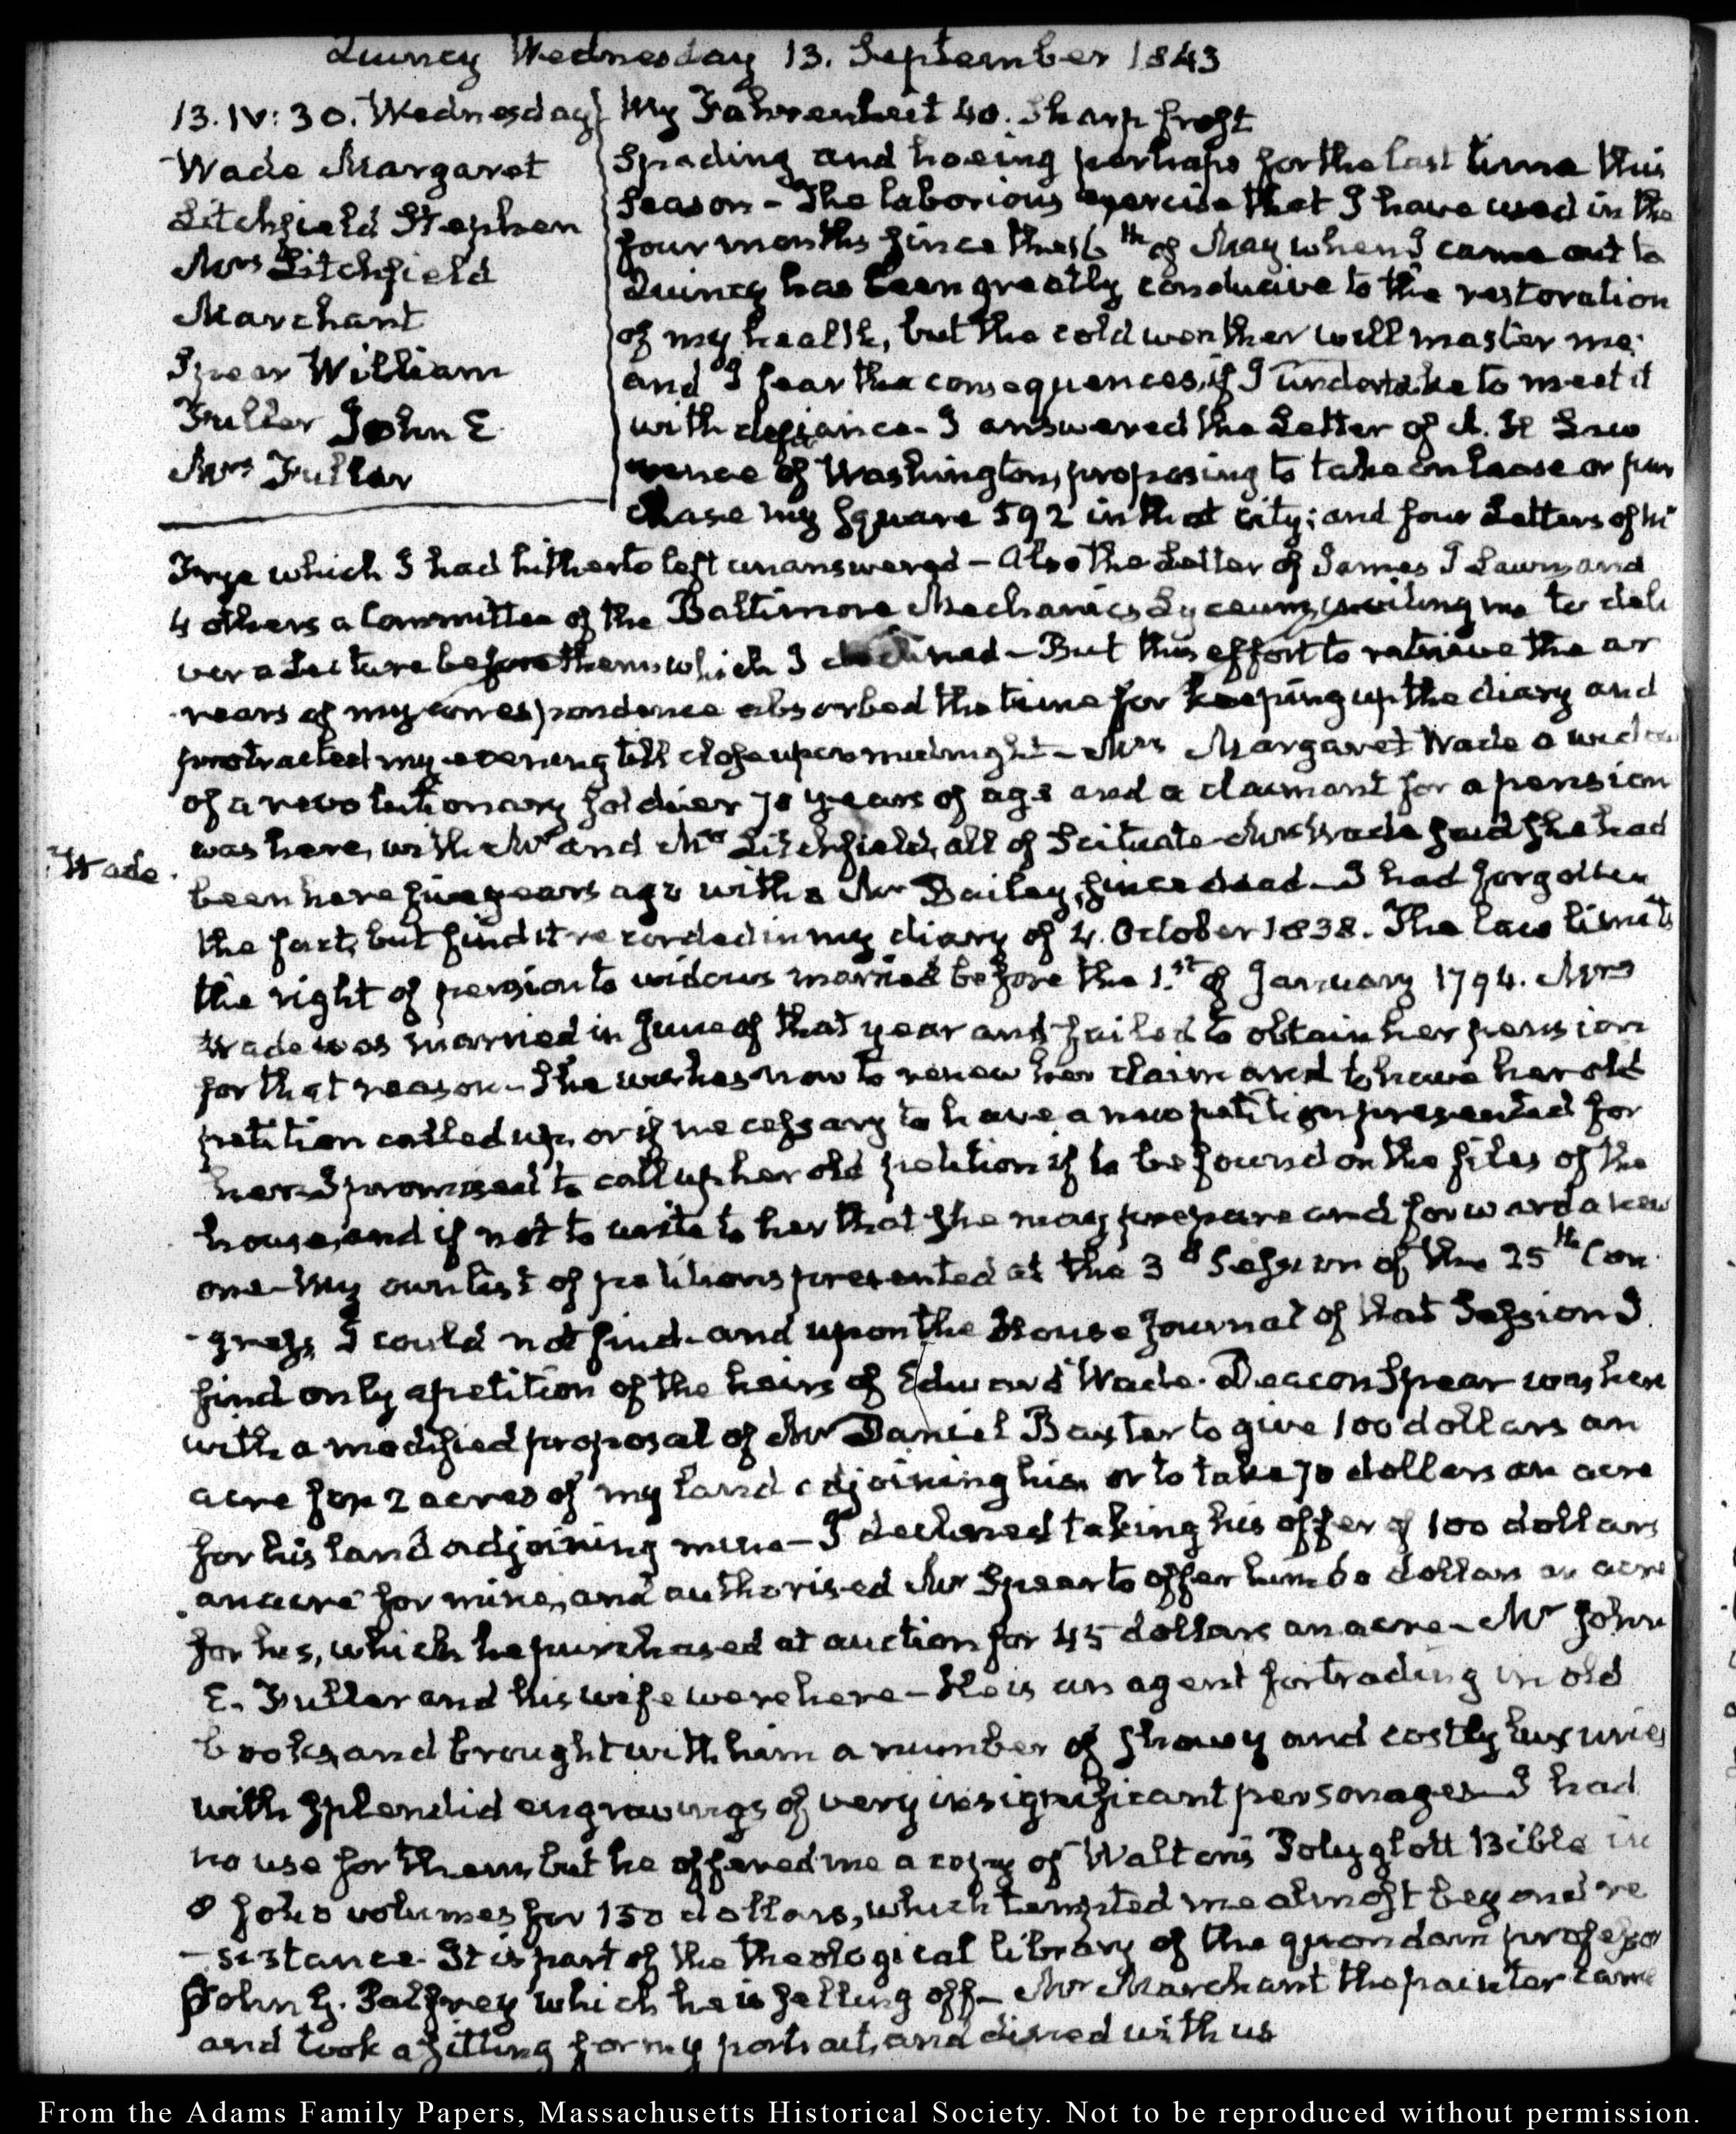 Quincy Wednesday 13. September 1843
13. IV: 30. Wednesday
Wade Margaret
Litchfield Stephen
Mrs Litchfield
Marchant
Spear William
Fuller John E
Mrs Fuller
My Fahrenheit 40. Sharp frost
Spading and hoeing perhaps for the last time this
season - The laborious exercise that I have used in the
four months since the 6th of May when I came out to
Quincy has been greatly conducive to the restoration
of my health, but the cold weather will master me;
and I fear the consequences, if I undertake to meet it
with defiance - I answered the Letter of A. H Law
rence of Washington, proposing to take on lease or pur
chase my Square 592 in that city; and four Letters of N
Frye which I had hitherto left unanswered - Also the Letter of James J and
4 others a Committee of the Baltimore Mechanics Lyceum, inviting me to deli
ver a Lecture before them which I declined - But this effort to retrieve the ar
rears of my correspondence absorbed the time for keeping up the diary and
protracted my evening till close upon midnight - Mrs Margaret Wade a widow
of a revolutionary soldier 70 years of age and a claimant for a pension
was here, with Mr and Mrs Litchfield, all of Scituate - Mrs Wade said she had
Wade.
been here five years ago with a Mr Bailey, since dead - I had forgotten
the fact, but find it recorded in my diary of 4. October 1838. The law limits
the right of pension to widows married before the 1st of January 1794. Mrs
Wade was married in June of that year and failed to obtain her pension
for that reason - She wishes now to renew her claim and to have her old
petition called up, or if necessary to have a new petition presented for
her - I promised to call up her old petition if to be found on the files of the
house, and if not to write to her that she may prepare and forward a new
one - My own list of petitions presented at the 3d Session of the 25th Con
-gress, I could not find - and upon the House Journal of that Session I
find only a petition of the heirs of Edward Wade. Deacon Spear was here
with a modified proposal of Mr Daniel Baxter to give 100 dollars an
acre for 2 acres of my land adjoining his or to take 70 dollars an acre
for his land adjoining mine - I declined taking his offer of 100 dollars
an acre for mine, and authorised Mr Spear to offer him 60 dollars an acre
for his, which he purchased at auction for 45 dollars an acre - Mr John
E. Fuller and his wife were here - He is an agent for trading in old
books, and brought with him a number of showy and costly luxuries
with splendid engravings of very insignificant personages - I had
no use for them, but he offered me a copy of Walton's Polyglott Bible in
8 folio volumes for 150 dollars, which tempted me almost beyond re
-sistance. It is part of the theological library of the quondam professor
John G. Palfrey which he is selling off - Mr Marchant the painter came
and took a sitting for my portrait, and dined with us
From the Adams Family Papers, Massachusetts Historical Society. Not to be reproduced without permission.